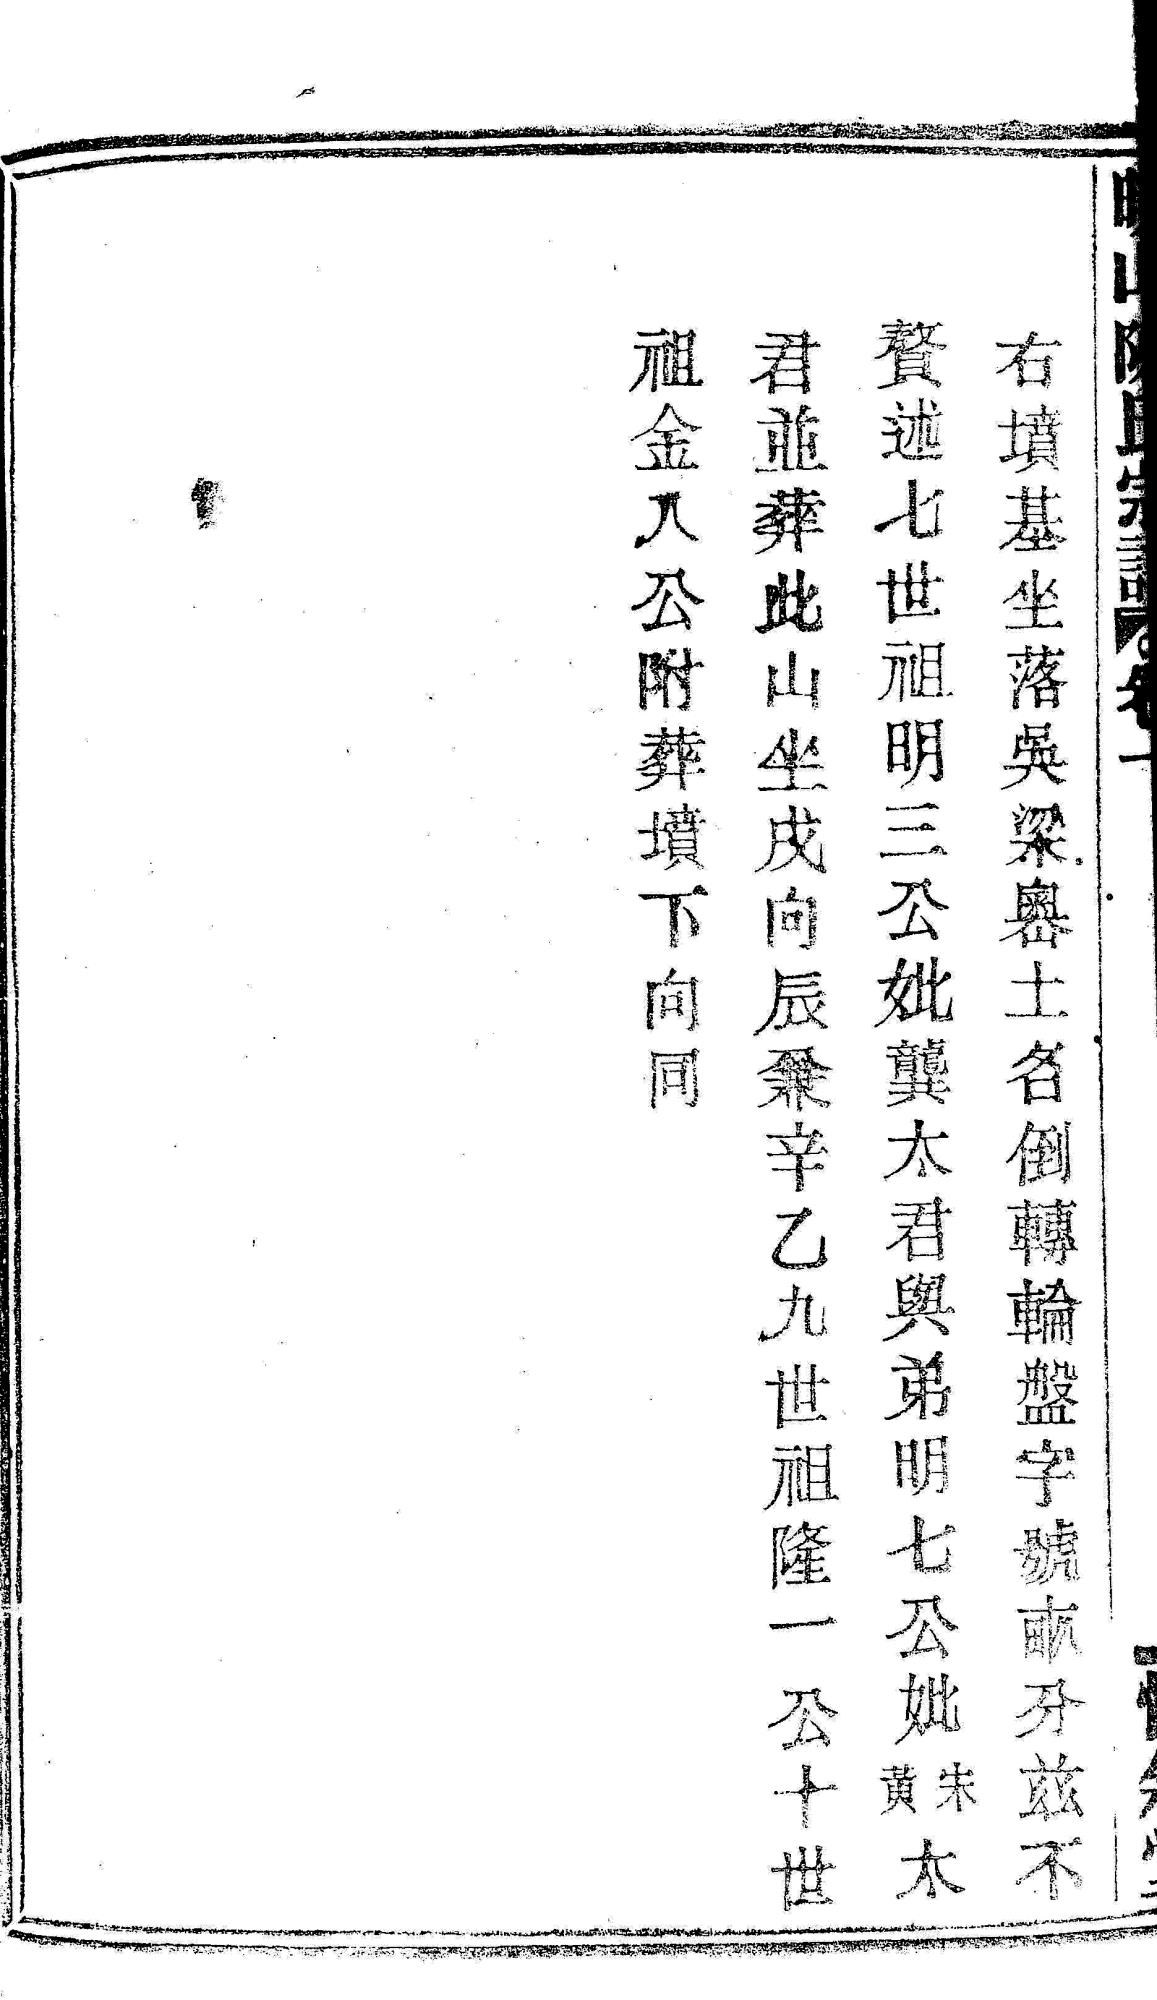 右墳基坐落吳梁嶴土名倒轉輪盤字號畝分茲不
贅述七世祖明三公妣龔太君與弟明七公妣宋黃太
君並葬此山坐戌向辰兼辛乙九世祖隆一公十世
祖金八公附葬墳下向同